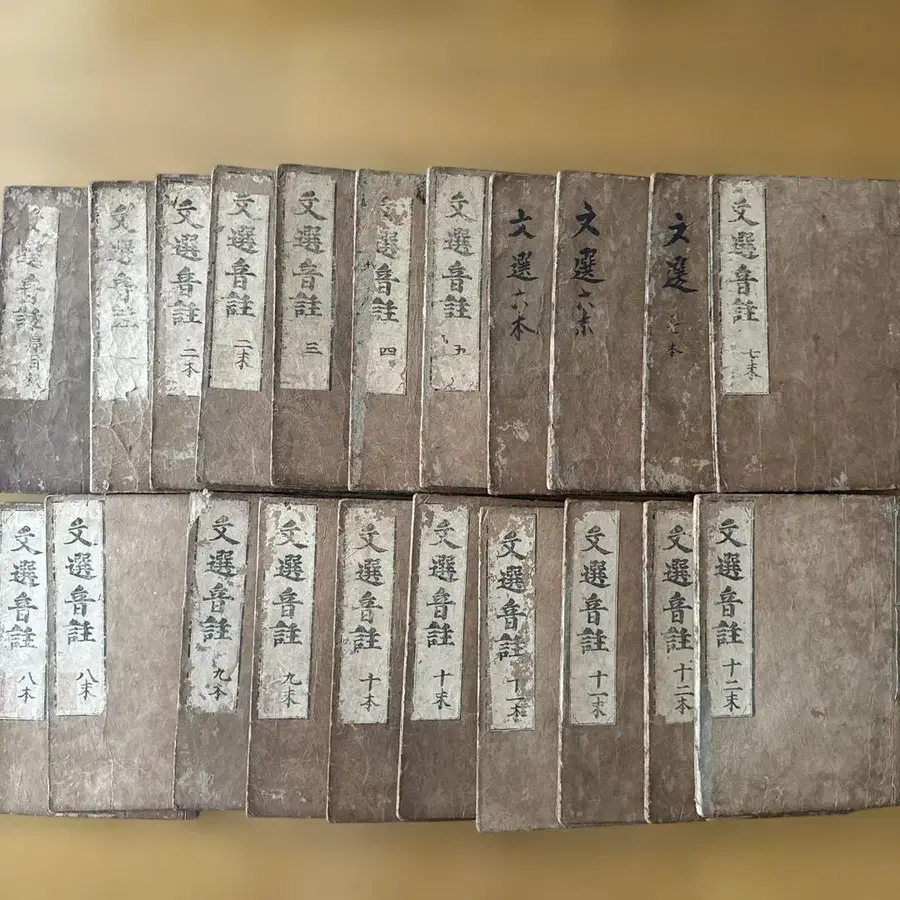 文選音註
文選音註 一
文選音註 二本
文選音註 二末
文選音註 三
文選音註 四
文選音註 五
文選 六本
文選 六末
文選 七本
文選音註 七末
文選音註 八本
文選音註 八末
文選音註 九本
文選音註 九末
文選音註 十本
文選音註 十末
文選音註 十一本
文選音註 十一末
文選音註 十二本
文選音註 十二末